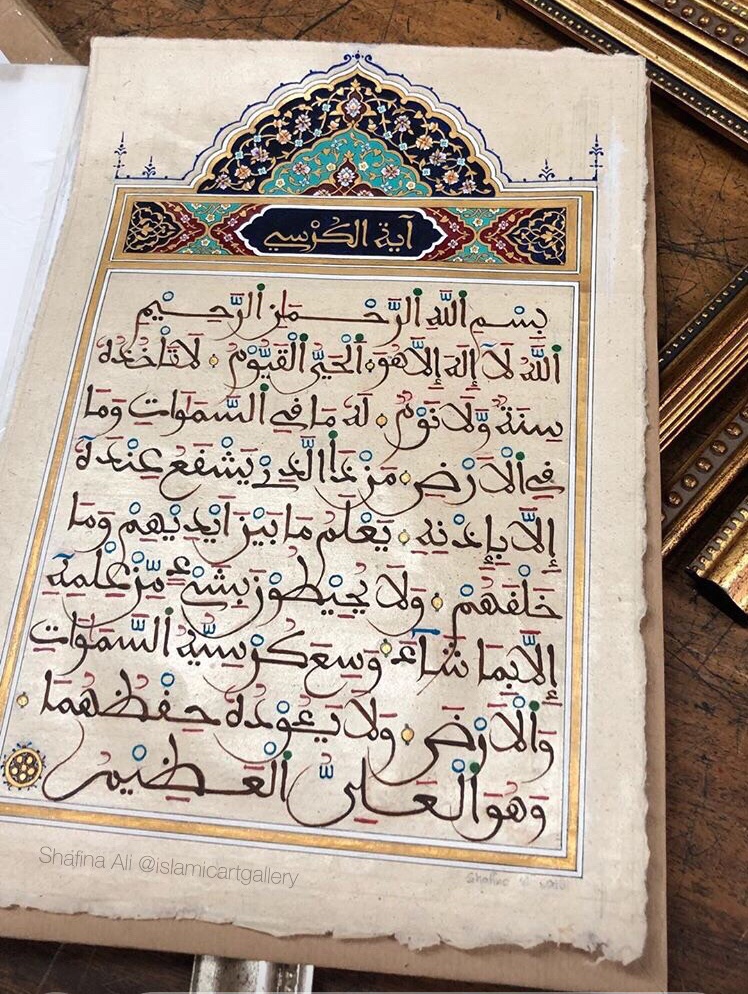 آية الكُرْسي
بِسْمِ اللَّهِ الرَّحْمَٰنِ الرَّحِيمِ
اللَّهُ لَآ إِلَٰهَ إِلَّا هُوَ الْحَيُّ الْقَيُّومُ لَا تَأْخُذُهُ
سِنَةٌ وَلَا نَوْمٌ لَهُ مَا فِي السَّمَٰوَاتِ وَمَا
فِي الْأَرْضِ مَنْ ذَا الَّذِي يَشْفَعُ عِنْدَهُ
إِلَّا بِإِذْنِهِ يَعْلَمُ مَا بَيْنَ أَيْدِيهِمْ وَمَا
خَلْفَهُمْ وَلَا يُحِيطُونَ بِشَيْءٍ مِّنْ عِلْمِهِ
إِلَّا بِمَا شَآءَ وَسِعَ كُرْسِيُّهُ السَّمَٰوَاتِ
وَالْأَرْضَ وَلَا يَئُودُهُ حِفْظُهُمَا
وَهُوَ الْعَلِيُّ الْعَظِيمُ
Shafina Ali @islamicartgallery